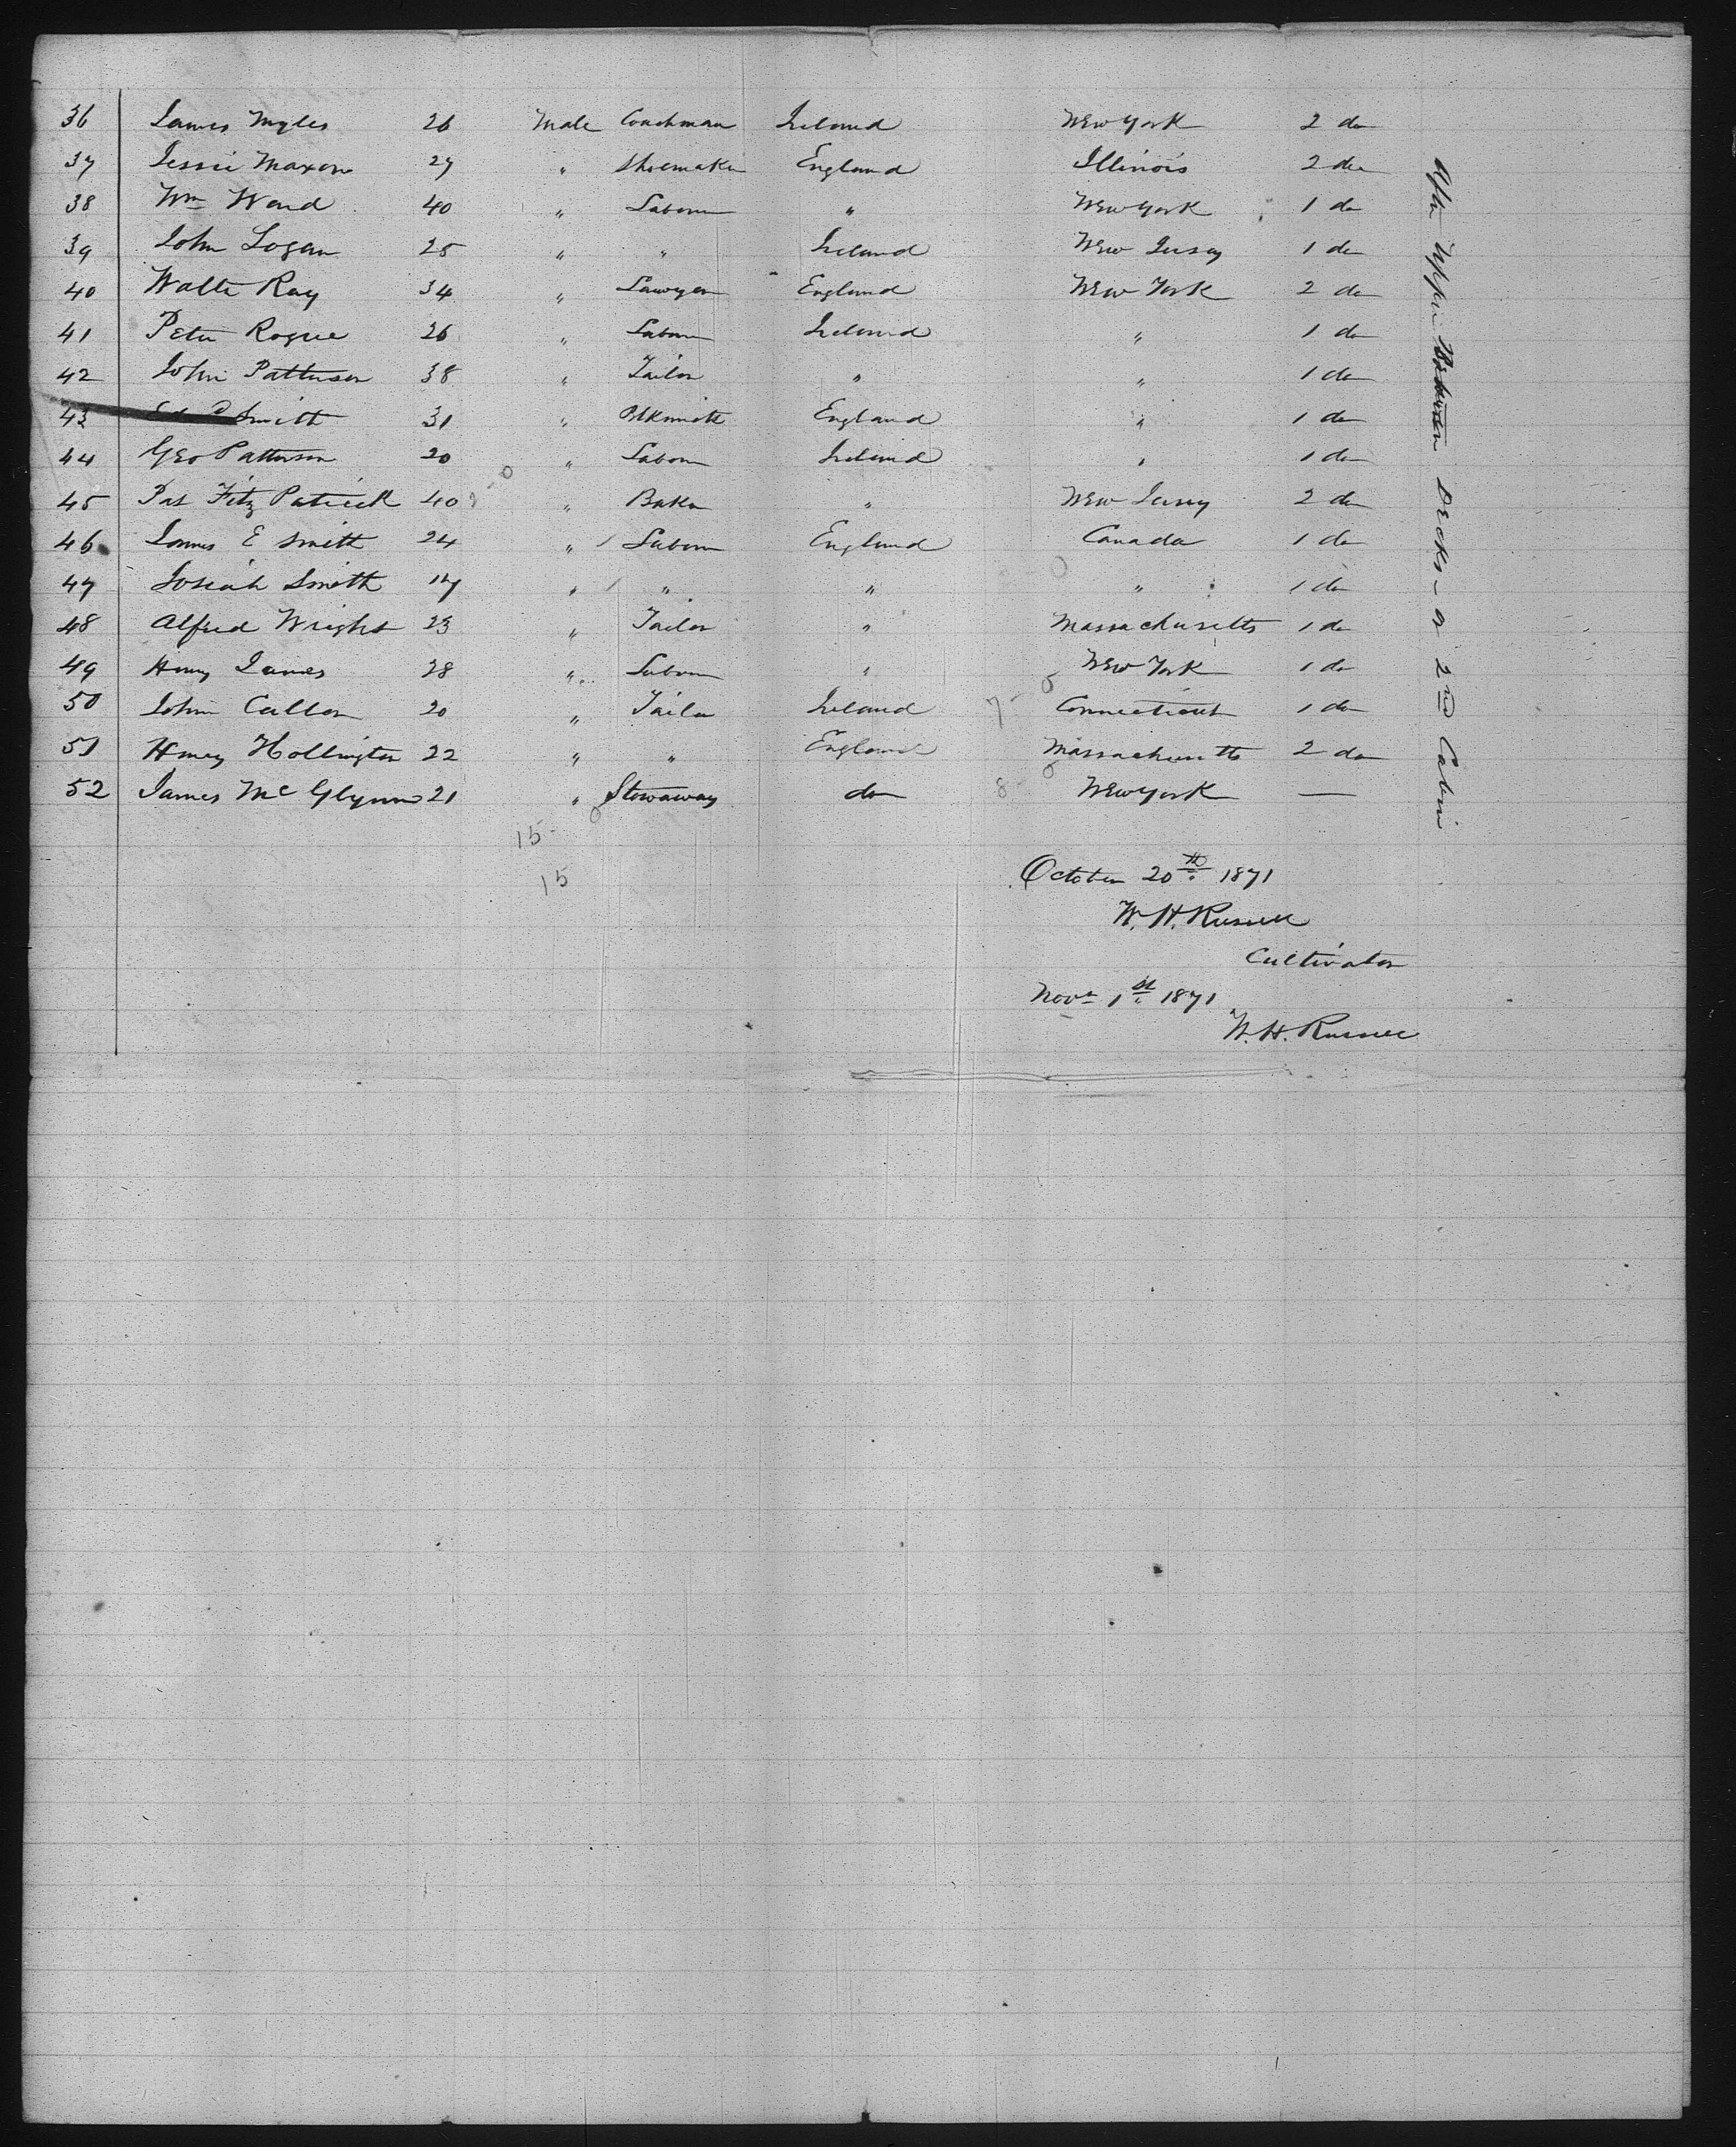 36 James Myles 26 Male Coachman Ireland New York 2 do
37 Jessie Maxon 27 " Shoemaker England Illinois 2 do
38 Wm Ward 40 " Labour " New York 1 do
39 John Logan 25 " " Ireland New Jersey 1 do
40 Walter Ray 34 " Lawyer England New York 2 do
41 Peter Rogue 26 " Labour Ireland " 1 do
42 John Patterson 38 " Tailor " " 1 do
43 Smith 31 " Blksmith England " 1 do
44 Geo Patterson 20 " Labour Ireland " 1 do
45 Pat Fitz Patrick 40 " Baker " New Jersey 2 do
46 James E Smith 24 " Labour England Canada 1 do
47 Josiah Smith 17 " " " " 1 do
48 Alfred Wright 23 " Tailor " Massachusetts 1 do
49 Henry James 38 " Labour " New York 1 do
50 John Callon 20 " Tailor Ireland Connecticut 1 do
51 Henry Hollington 22 " " England Massachusetts 2 do
52 James Mc Glynn 21 " Stowaway do New York —
After Upper Between Decks - or 2nd Cabin
15
15
October 20th 1871
W. H. Russell
Cultivator
Novr 1st 1871
W. H. Russell